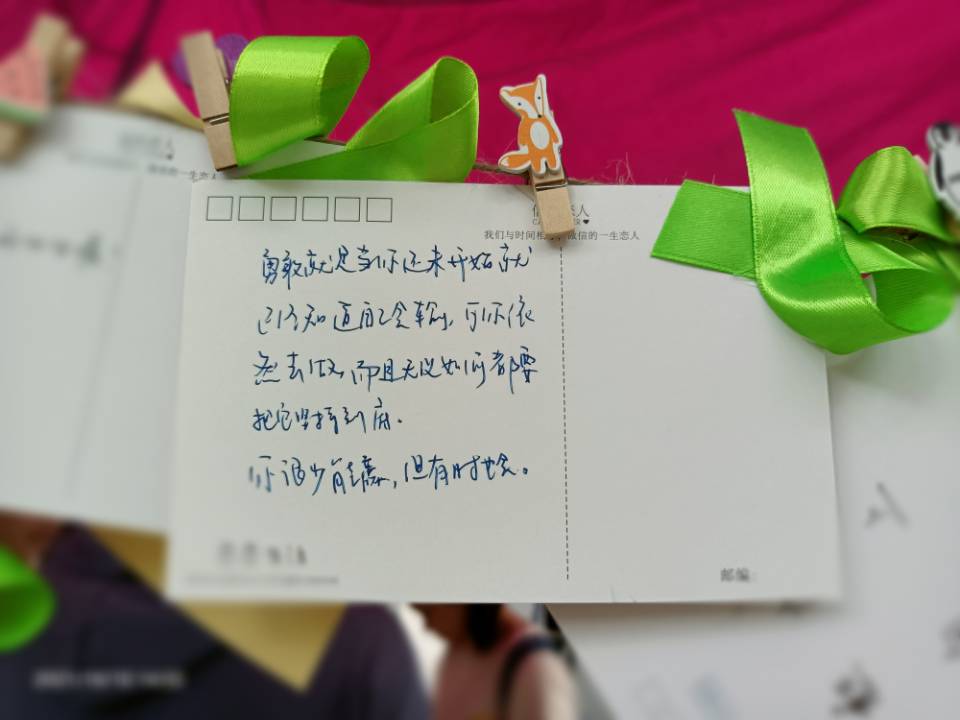 我们与时间相
微信的一生恋人
勇敢就是当你还未开始就
已经知道自己会输，可你依
然去做，而且无论如何都要
把它坚持到底．
你很少能赢，但有时也会。
邮编：